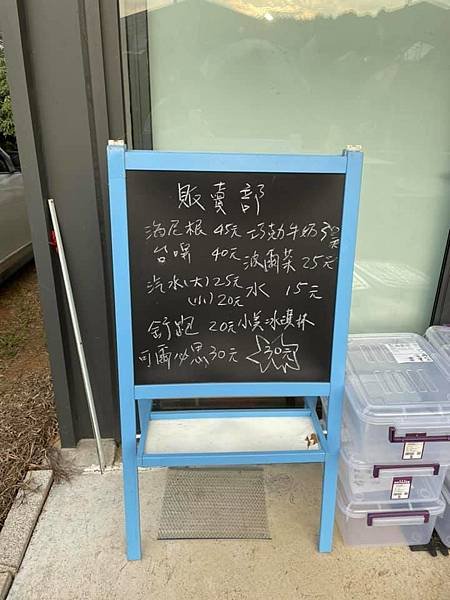 販賣部
海尼根 45元 巧幼牛奶 30元
台啤 40元 波爾茶 25元
汽水(大) 25元
(小) 20元 水 15元
舒跑 20元 小美冰淇淋
可爾必思 30元 30元